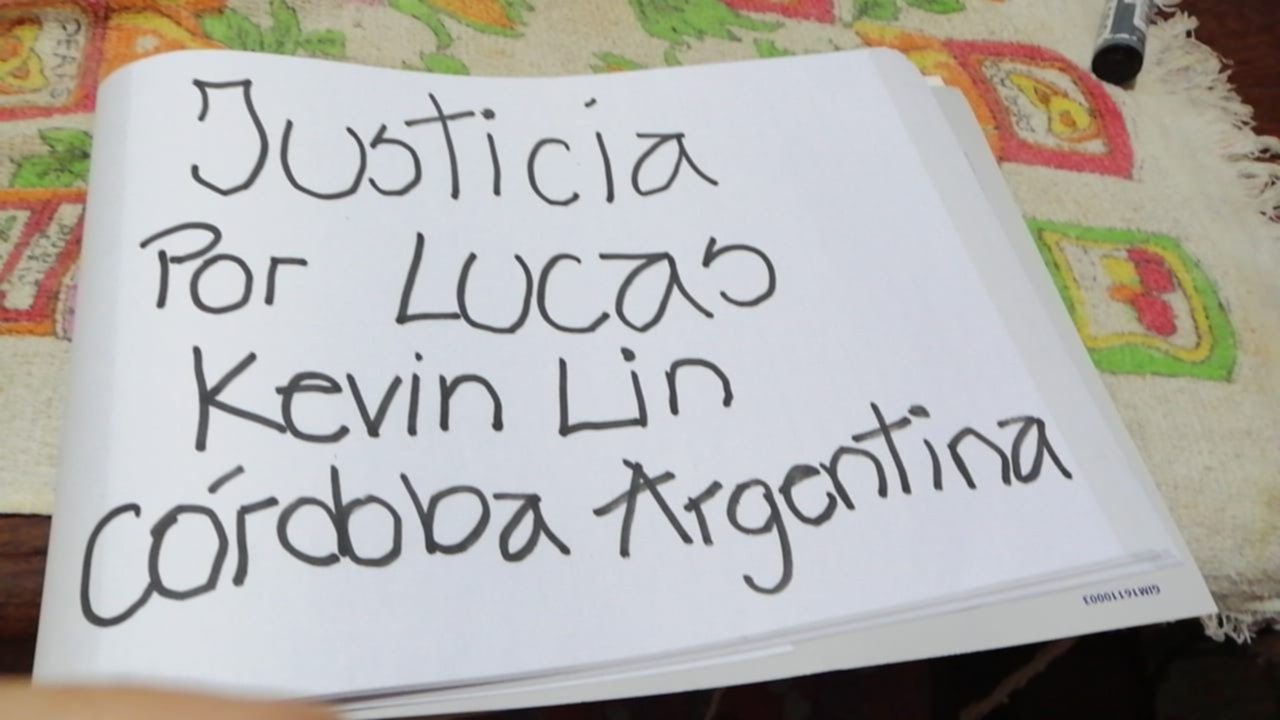 Justicia
Por Lucas
Kevin Lin
Córdoba Argentina
GIM16110003